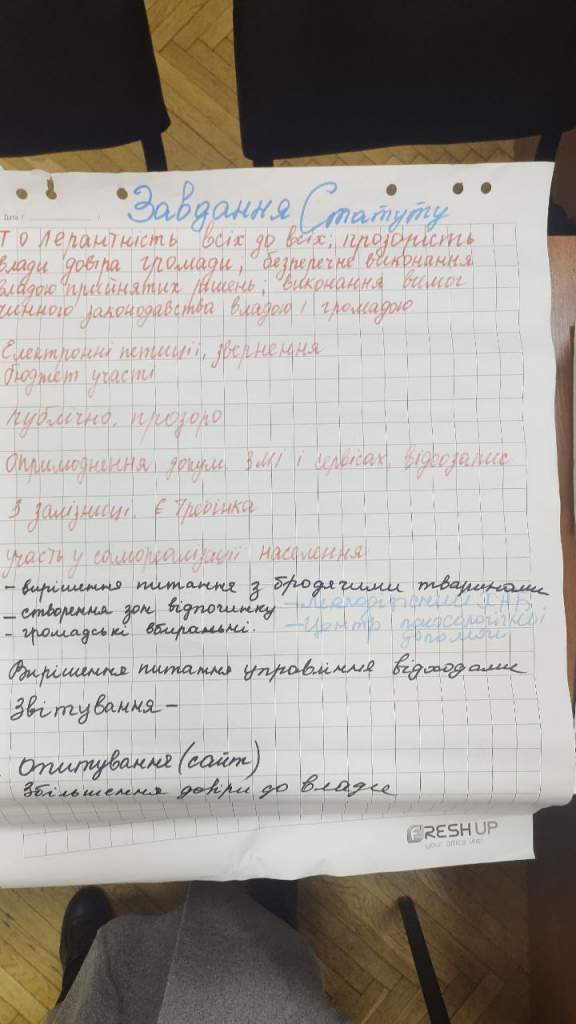 Дата
Завдання Статуту
Толерантність всіх до всіх; прозорість
влади довіра громади; безперечне виконання
владою прийнятих рішень; виконання вимог
чинного законодавства владою і громадою.
Електронні петиції, звернення
бюджет участі
Публічно, прозоро
Оприлюднення докум. ЗМІ і сервісах, відеозапис
З залізниці. Є Гребінка
участь у самореалізації населення
- вирішення питання з бродячими тваринами
- створення зон відпочинку - Молодіжний ХАБ
- громадські вбиральні. - Центр психологічної
допомоги
Вирішення питання управління відходами
Звітування -
Опитування (сайт)
Збільшення довіри до влади
FRESH UP
your office line